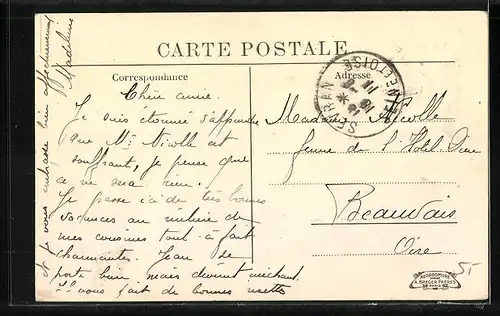 CARTE POSTALE
Correspondance
Adresse
Chère amie.
Je suis étonnée d'apprendre
que Mr Nicolle est
souffrant, je pense que
ce ne sera rien.
Je passe ici de très bonnes
vacances au milieu de
mes cousines tout à fait
charmantes. Jean se
porte bien mais devient méchant.
Il vous fait de bonnes risettes
et je vous embrasse bien affectueusement
Madeleine
Madame Nicolle
ferme de l'Hotel Dieu
Beauvais
Oise
SEVRAN
SEINE ET OISE
A. BREGER FRÈRES
PARIS
5-